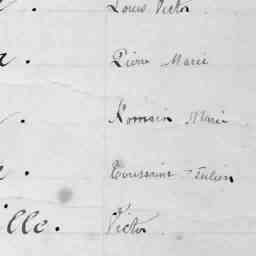 Louis Victor
Pierre Marie
Romain Marie
Toussaint Julien
ille. Victor